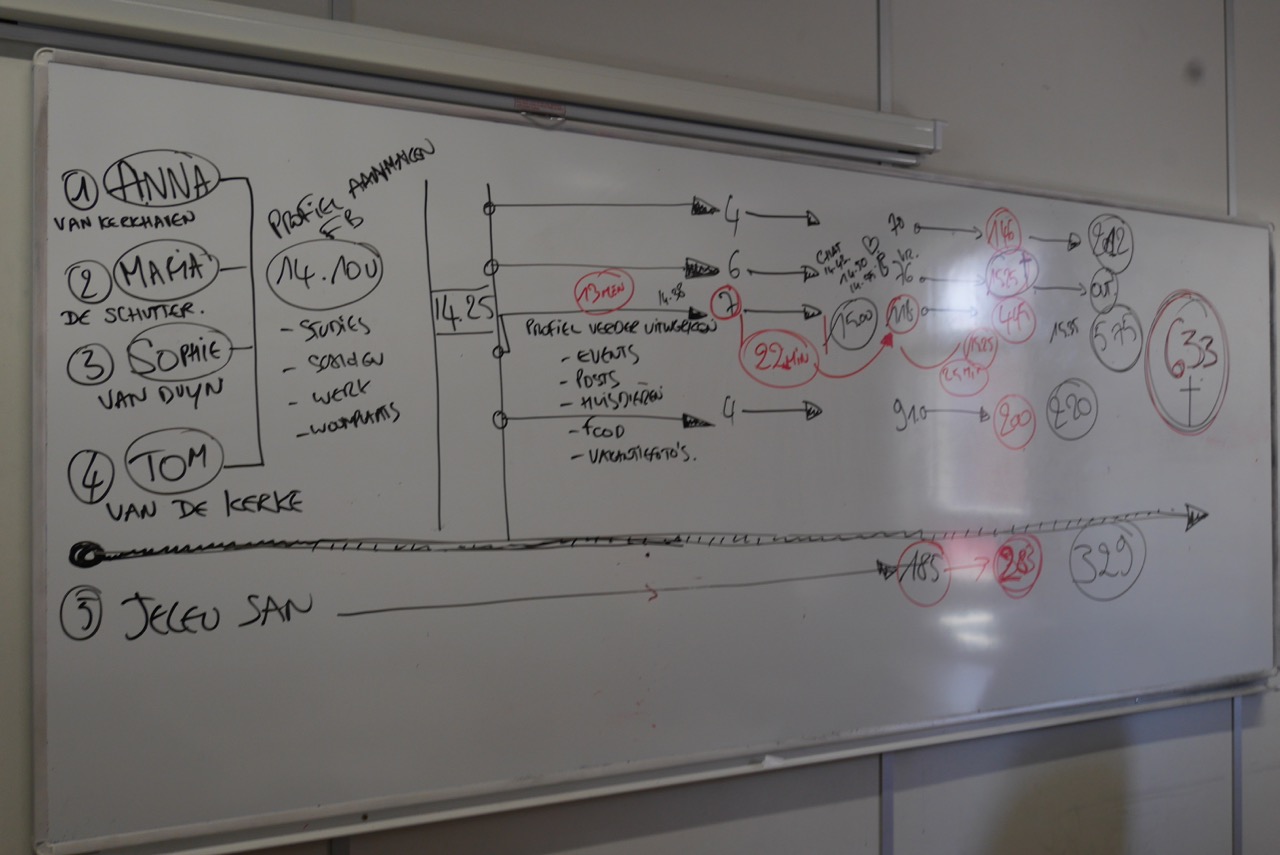 1 ANNA
VAN KERKHAVEN
2 MARIA
DE SCHUTTER.
3 SOPHIE
VAN DUYN
4 TOM
VAN DE KERKE
PROFIEL AANMAKEN
FB
14.10U
- STUDIES
- WERK
- WOONPLAATS
14.25
13 MIN
14.38
PROFIEL VERDER UITWERKEN
- EVENTS
- POSTS
- HUISDIEREN
- FOOD
- VAKANTIEFOTO'S.
4
6
7
4
22 MIN
CHAT
14.42
14.50
15.00
70
76
118
910
146
15.25
445
15.25
25 MIN
200
202
575
220
633
5 JELEU SAN
185
283
329